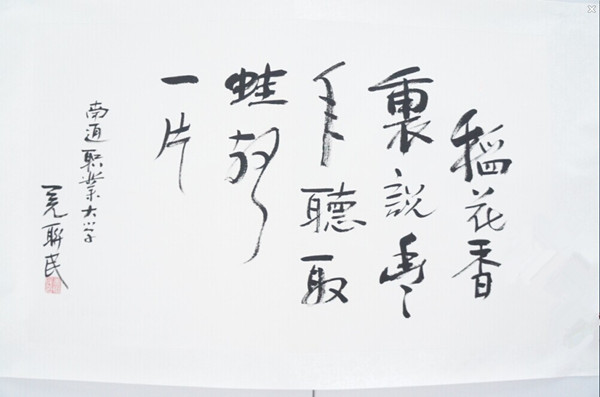 稻花香
裏説豐
年聽取
蛙聲
一片
南通职業大学
聯民